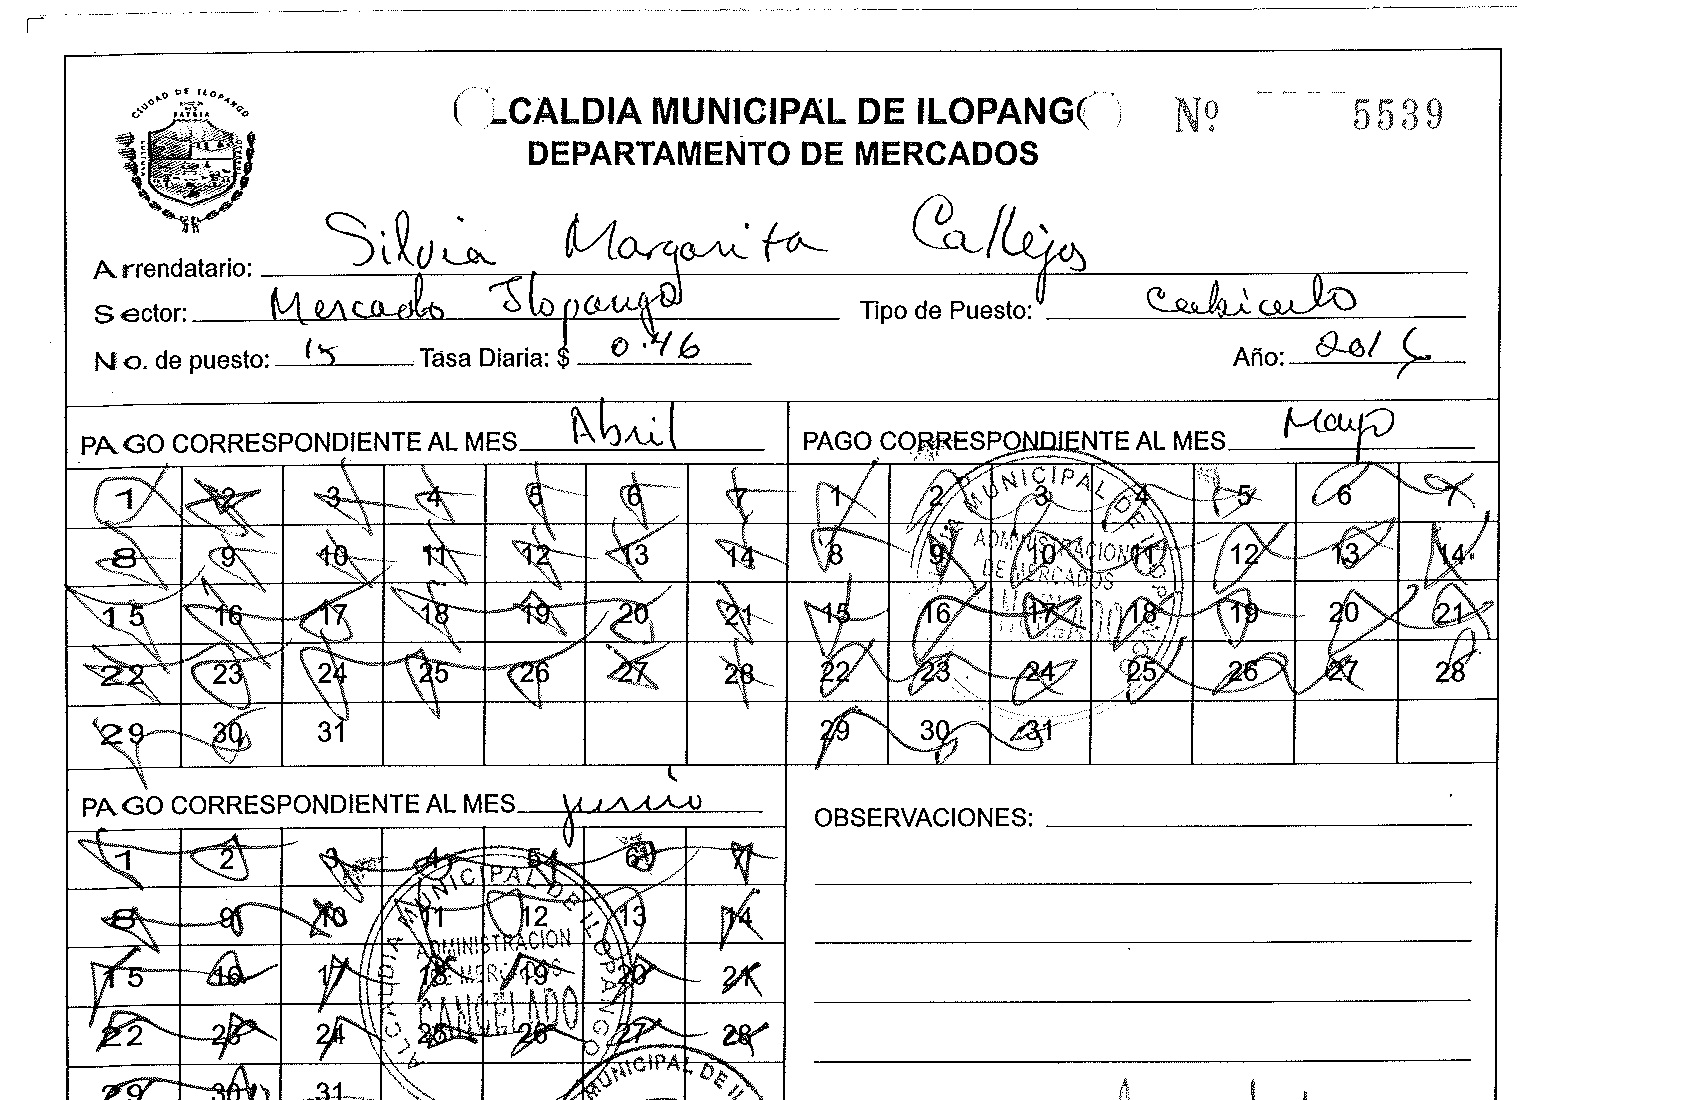 CIUDAD DE ILOPANGO
PATRIA
ALCALDIA MUNICIPAL DE ILOPANGO
Nº 5539
DEPARTAMENTO DE MERCADOS
Arrendatario: Silvia Margarita Callejos
Sector: Mercado Ilopango Tipo de Puesto: Cubiculo
No. de puesto: 15 Tasa Diaria: $ 0.46 Año:
PAGO CORRESPONDIENTE AL MES Abril
1 2 3 4 5 6 7
8 9 10 11 12 13 14
15 16 17 18 19 20 21
22 23 24 25 26 27 28
29 30 31
PAGO CORRESPONDIENTE AL MES Mayo
1 2 3 4 5 6 7
8 9 10 11 12 13 14
15 16 17 18 19 20 21
22 23 24 25 26 27 28
29 30 31
MUNICIPAL DE ILOPANGO
ADMINISTRACION
DE MERCADOS
PAGO CORRESPONDIENTE AL MES junio
1 2 3 4 5 6 7
8 9 10 11 12 13 14
15 16 17 18 19 20 21
22 23 24 25 26 27 28
29 30 31
ALCALDIA MUNICIPAL DE ILOPANGO
ADMINISTRACION
DE MERCADOS
CANCELADO
MUNICIPAL DE IL
OBSERVACIONES: